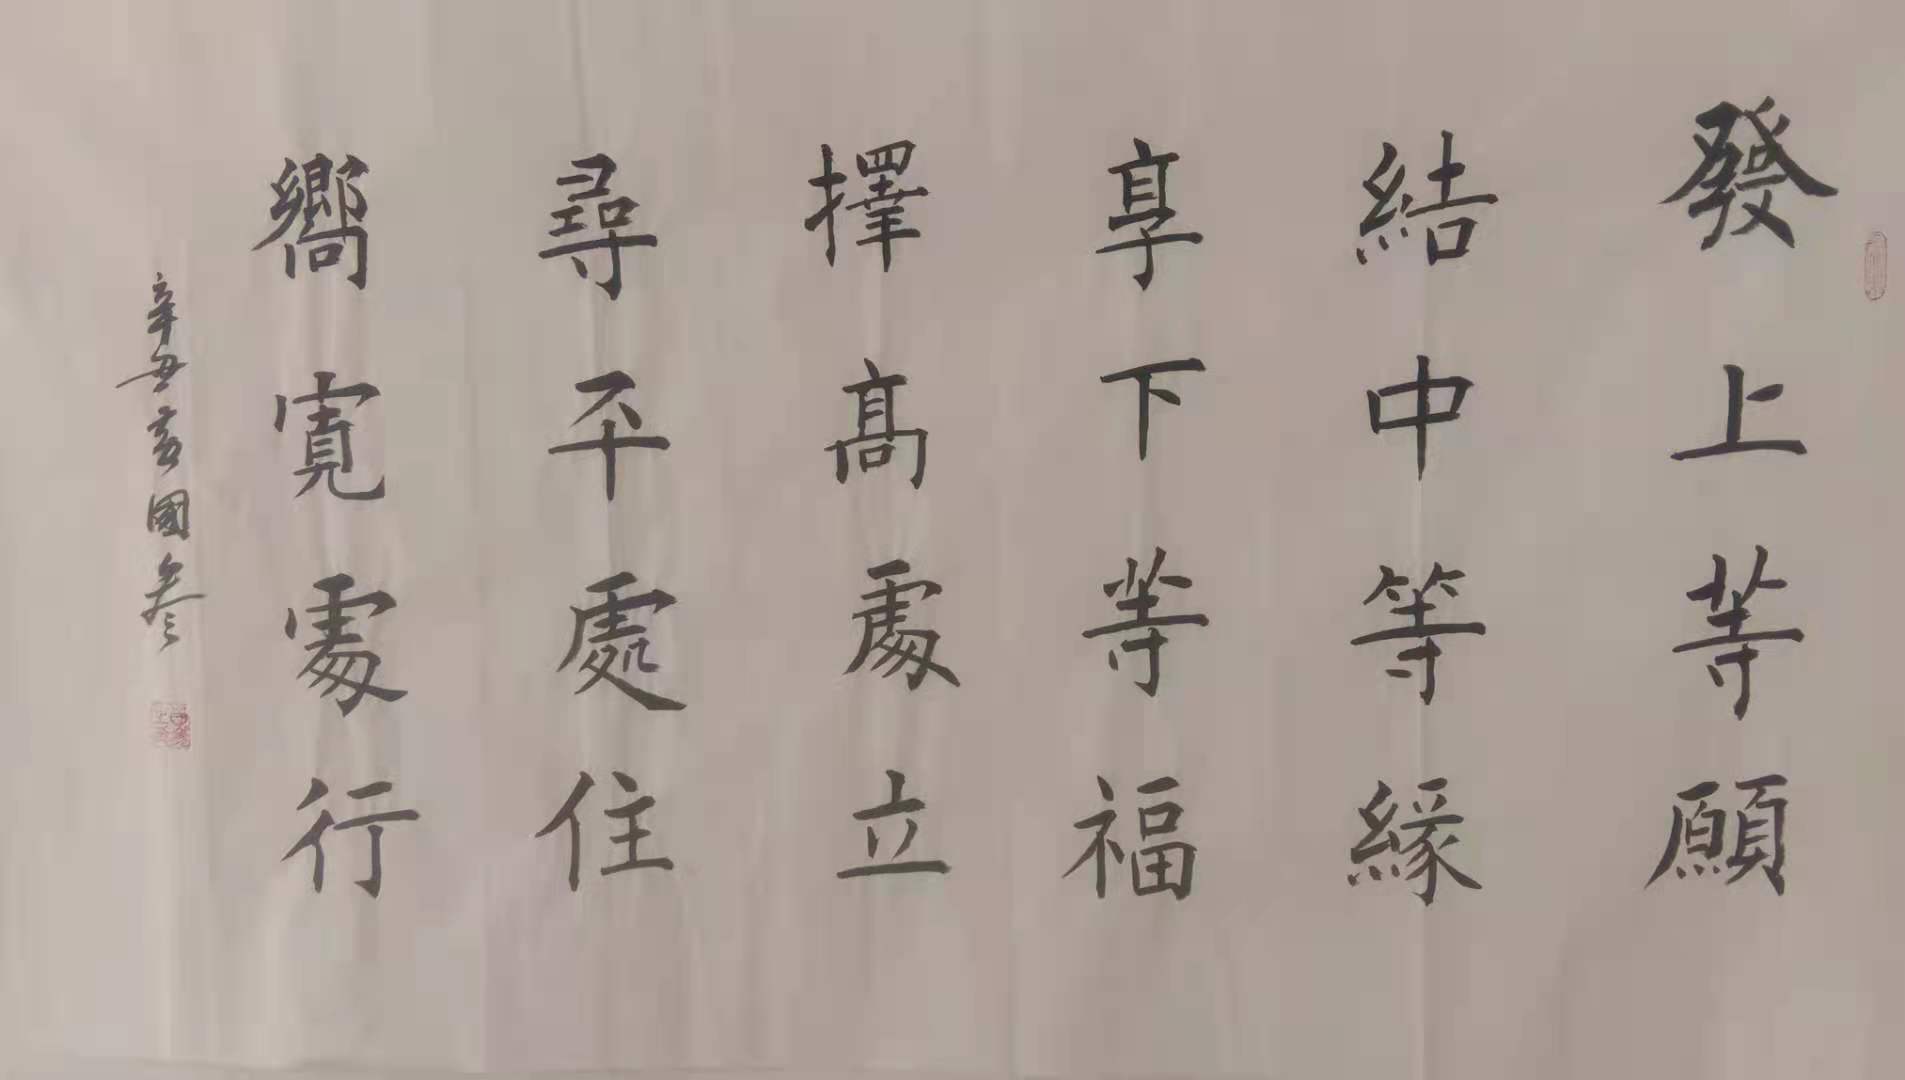 發上等願
結中等緣
享下等福
擇高處立
尋平處住
嚮寬處行
辛丑 國